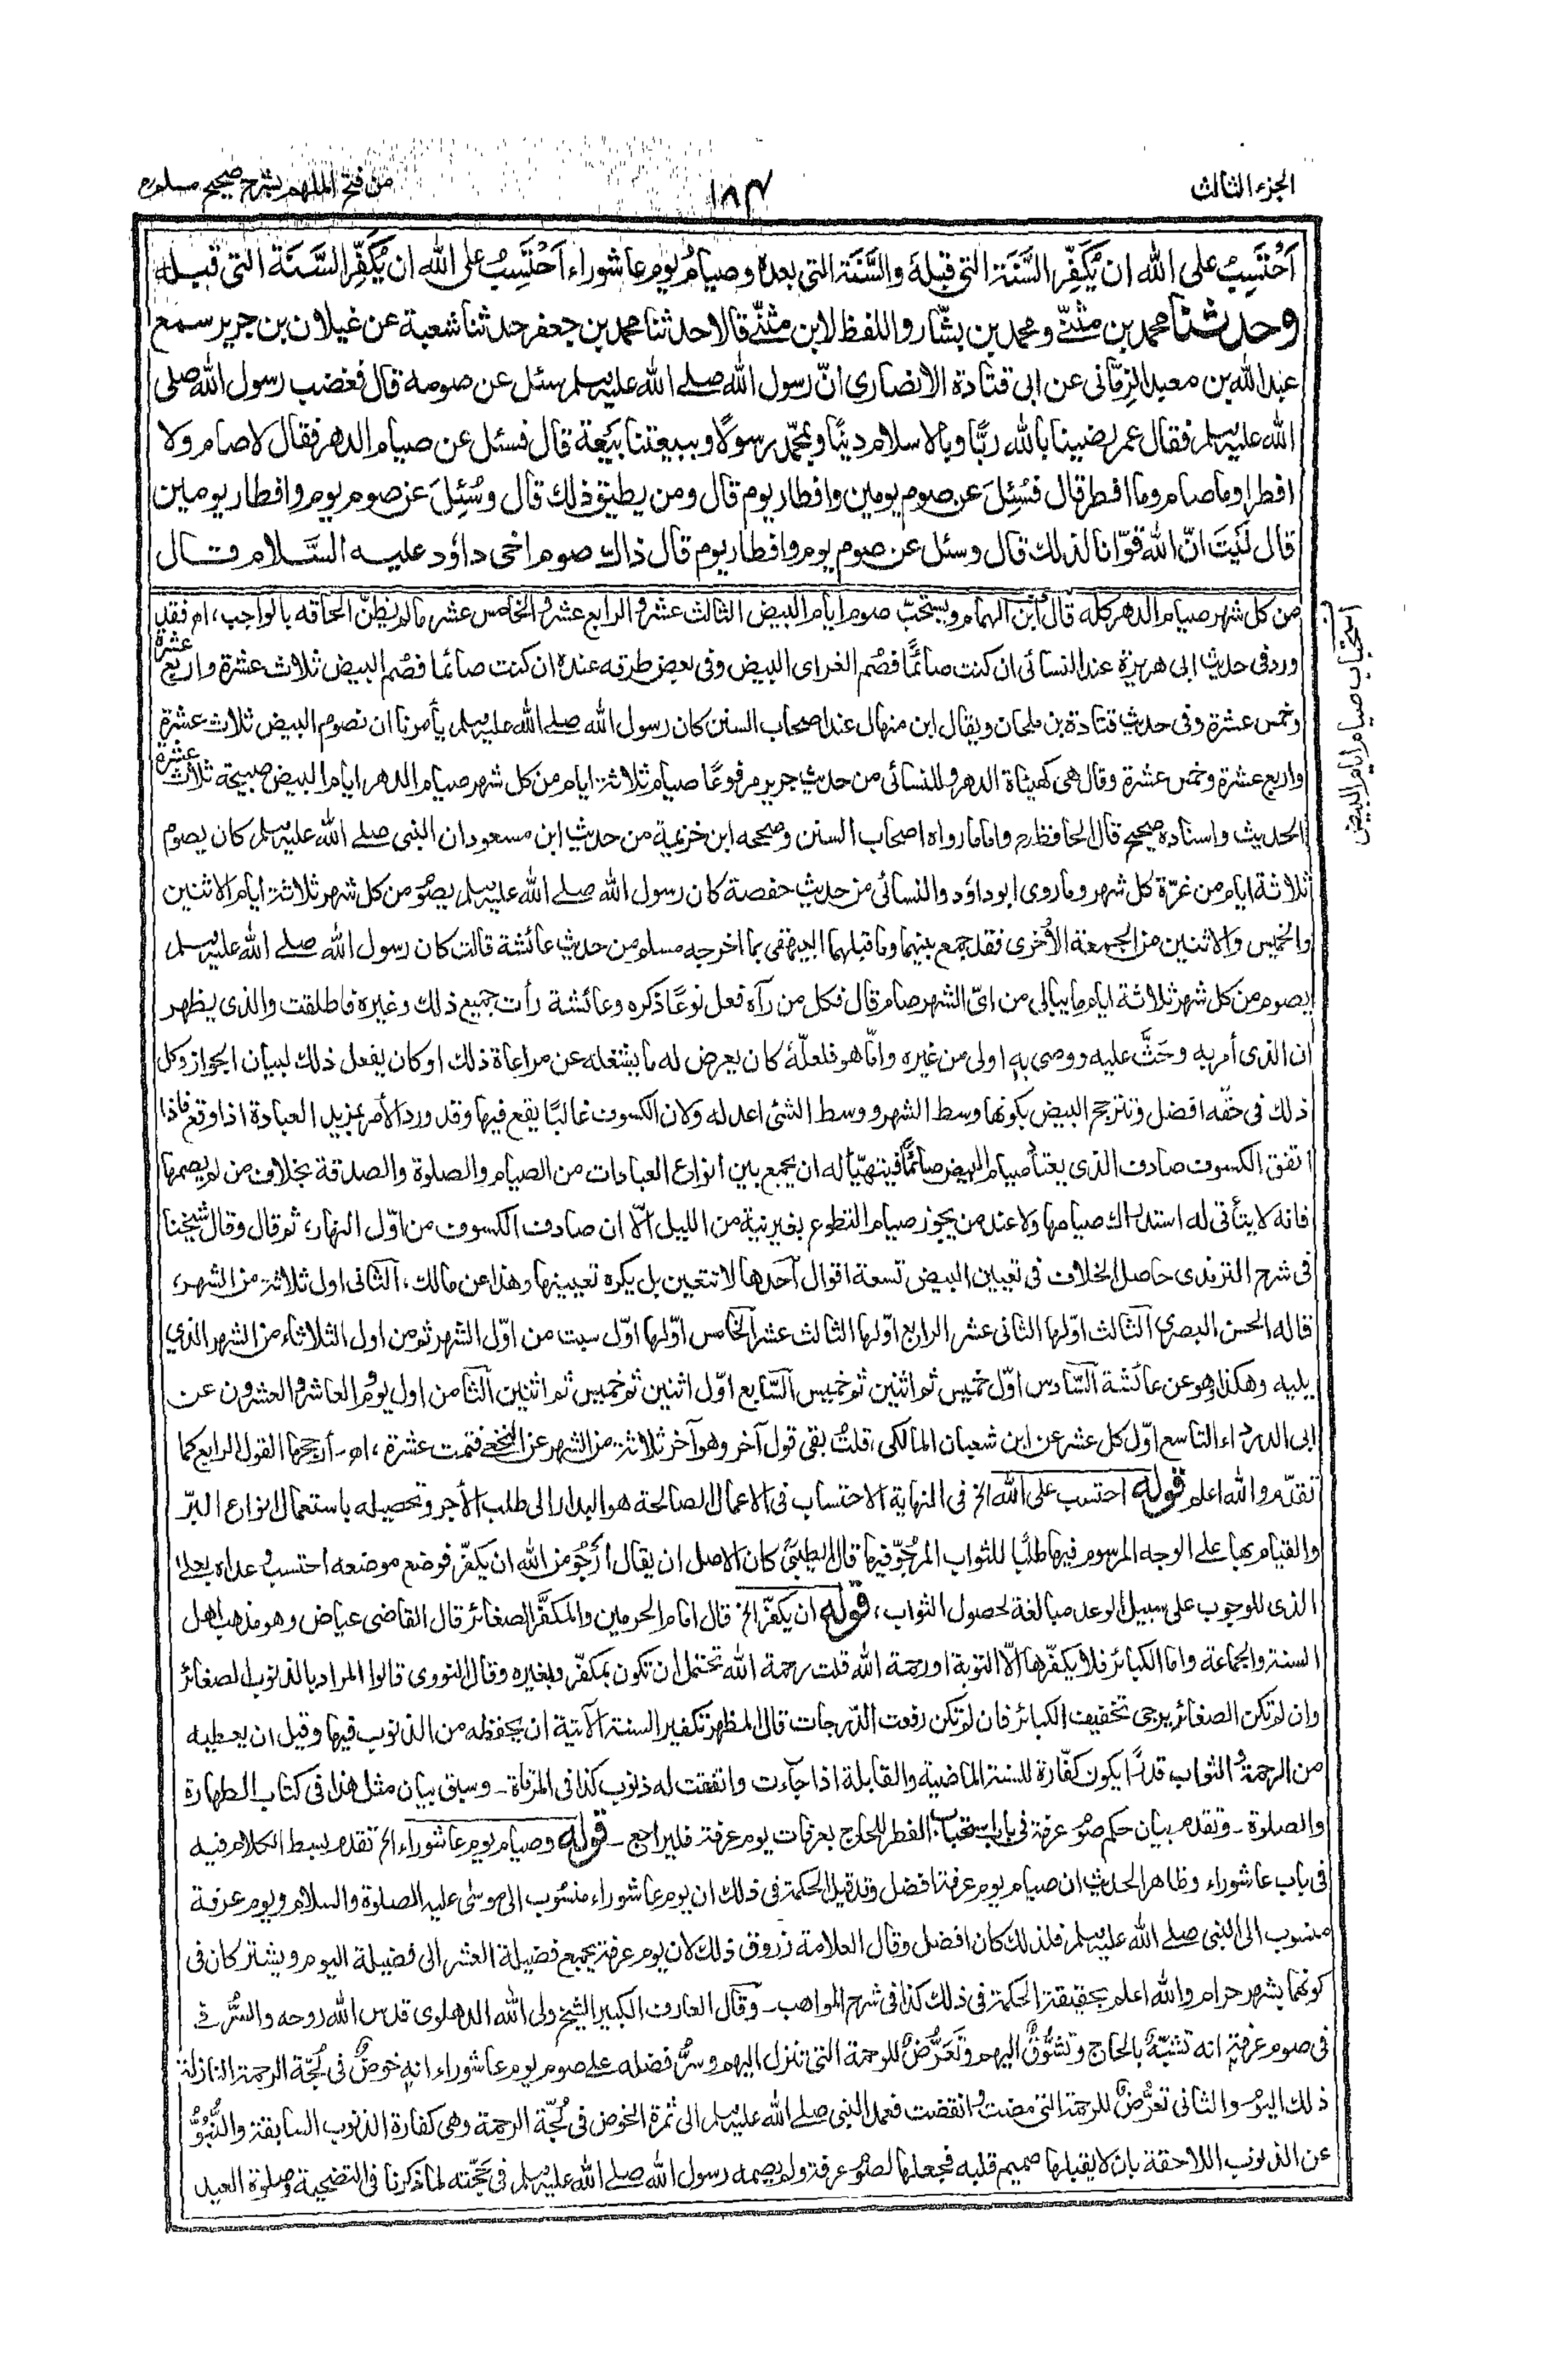 الجزء الثالث
١٨٣
من فتح الملهم بشرح صحيح مسلم
اَحْتَسِبُ على الله ان يُكَفِّرَ السَّنَةَ التى قبله والسَّنَة التى بعده وصيامُ يوم عاشوراء اَحْتَسِبُ على الله ان يُكَفِّرَ السَّنَة التى قبله
وحدثنا محمد بن مثنّٰى ومحمد بن بشّار واللفظ لابن مثنّٰى قالا حدثنا محمد بن جعفر حدثنا شعبة عن غيلان بن جرير سمع
عبد الله بن معبد الزِمّانى عن ابى قتادة الانصارى انّ رسول الله صلے الله عليه وسلم سئل عن صومه قال فغضب رسول الله صلى
الله عليه وسلم فقال عمر رضينا بالله ربًّا وبالاسلام دينًا وبمحمّد رسولًا وببيعتنا بَيْعة قال فسئل عن صيام الدهر فقال لا صام ولا
افطر او ما صام وما افطر قال فسُئِلَ عن صوم يومين وافطار يوم قال ومن يطيق ذلك قال وسُئِلَ عن صوم يوم وافطار يومين
قال لَيْتَ انّ الله قوّانا لذلك قال وسئل عن صوم يوم وافطار يوم قال ذاك صوم اخى داوٗد عليه السَّلام قال
من كل شهر صيام الدهر كله قال ابن الهمام ويستحبّ صوم ايام البيض الثالث عشر والرابع عشر والخامس عشر ما لم يظنّ الحاقه بالواجب، اھ فقد
ورد فى حديث ابى هريرة عند النسائى ان كنت صائمًا فصُم الغر اى البيض وفى بعض طرقه عنده ان كنت صائما فصُم البيض ثلاث عشرة واربع عشرة
وخمس عشرة وفى حديث قتادة بن ملحان ويقال ابن منهال عند اصحاب السنن كان رسول الله صلے الله عليه وسلم يأمرنا ان نصوم البيض ثلاث عشرة
واربع عشرة وخمس عشرة وقال هى كهيئة الدهر وللنسائى من حديث جرير مرفوعًا صيام ثلاثة ايام من كل شهر صيام الدهر ايام البيض صبيحة ثلاث عشرة
الحديث واسناده صحيح قال الحافظ رح واما ما رواه اصحاب السنن وصححه ابن خزيمة من حديث ابن مسعود ان النبى صلے الله عليه وسلم كان يصوم
ثلاثة ايام من غرّة كل شهر وما روى ابو داوٗد والنسائى من حديث حفصة كان رسول الله صلے الله عليه وسلم يصوم من كل شهر ثلاثة ايام الاثنين
والخميس والاثنين من الجمعة الاُخرى فقد جمع بينهما وما قبلهما البيهقى بما اخرجه مسلم من حديث عائشة قالت كان رسول الله صلے الله عليه وسلم
يصوم من كل شهر ثلاثة ايام ما يبالى من اىّ الشهر صام قال فكل من رآه فعل نوعًا ذكره وعائشة رأت جميع ذلك وغيره فاطلقت والذى يظهر
ان الذى أمر به وحَثَّ عليه ووصى به اولى من غيره وامّا هو فلعلّه كان يعرض له ما يشغله عن مراعاة ذلك او كان يفعل ذلك لبيان الجواز وكل
ذلك فى حقّه افضل وتترجح البيض بكونها وسط الشهر ووسط الشئى اعدله ولان الكسوف غالبًا يقع فيها وقد ورد الأمر بمزيد العبادة اذا وقع فاذا
اتفق الكسوف صادف الذى يعتاد صيام البيض صائمًا فيتهيّأ له ان يجمع بين انواع العبادات من الصيام والصلوة والصدقة بخلاف من لم يصمها
فانه لا يتأتى له استدراك صيامها ولا عند من يجوز صيام التطوع بغير نية من الليل الّا ان صادف الكسوف من اوّل النهار، ثم قال وقال شيخنا
فى شرح الترمذى حاصل الخلاف فى تعيين البيض تسعة اقوال آحدها لا تتعين بل يكره تعيينها وهذا عن مالك، الثانى اول ثلاثة من الشهر،
قاله الحسن البصرى الثالث اوّلها الثانى عشر الرابع اوّلها الثالث عشر الخامس اوّلها اوّل سبت من اوّل الشهر ثم من اول الثلاثاء من الشهر الذى
يليه وهكذا وهو عن عائشة السّادس اوّل خميس ثم اثنين ثم خميس السّابع اوّل اثنين ثم خميس ثم اثنين الثامن اول يوم والعاشر والعشرون عن
ابى الدرداء التاسع اوّل كل عشر عن ابن شعبان المالكى، قلتُ بقى قول آخر وهو آخر ثلاثة من الشهر عن النخعى فتمت عشرة، اھ۔ أرجحها القول الرابع كما
تقدّم والله اعلم قوله احتسب على الله الخ فى النهاية الاحتساب فى الاعمال الصالحة هو البدار الى طلب الأجر وتحصيله باستعمال انواع البرّ
والقيام بها على الوجه المرسوم فيها طلبًا للثواب المرجوّ فيها قال الطيبىّ كان الاصل ان يقال أرجُو من الله ان يكفّر فوضع موضعه احتسب وعداه بعلى
الذى للوجوب على سبيل الوعد مبالغة لحصول الثواب، قوله ان يكفّر الخ قال امام الحرمين والمكفَّر الصغائر قال القاضى عياض وهو مذهب اهل
السنة والجماعة واما الكبائر فلا يكفّرها الّا التوبة او رحمة الله قلت رحمة الله تحتمل ان تكون بمكفّر وبغيره وقال النووى قالوا المراد بالذنوب الصغائر
وان لم تكن الصغائر يرجى تخفيف الكبائر فان لم تكن رفعت الدّرجات قال المظهر تكفير السنة الآتية ان يحفظه من الذنوب فيها وقيل ان يعطيه
من الرحمة والثواب قدرًا يكون كفّارة للسنة الماضية والقابلة اذا جاءت واتفقت له ذنوب كذا فى المرقاة۔ وسبق بيان مثل هذا فى كتاب الطهارة
والصلوة۔ وتقدم بيان حكم صوم عرفة فى باب استحباب الفطر للحاج بعرفات يوم عرفة فليراجع۔ قوله وصيام يوم عاشوراء الخ تقدم بسط الكلام فيه
فى باب عاشوراء وظاهر الحديث ان صيام يوم عرفة افضل وقد قيل الحكمة فى ذلك ان يوم عاشوراء منسُوب الى موسٰى عليه الصلوة والسلام ويوم عرفة
منسوب الى النبى صلے الله عليه وسلم فلذلك كان افضل وقال العلامة زروق ذلك لان يوم عرفة يجمع فضيلة العشر الى فضيلة اليوم ويشتركان فى
كونهما بشهر حرام والله اعلم بحقيقة الحكمة فى ذلك كذا فى شرح المواهب۔ وقال العارف الكبير الشيخ ولى الله الدهلوى قدس الله روحه والسُّر فى
فى صوم عرفة انه تشبّهٌ بالحاج وتشوُّقٌ اليهم وتَعَرُّضٌ للرحمة التى تنزل اليهم وسرُّ فضله على صوم يوم عاشوراء انه خوضٌ فى لُجّة الرحمة النازلة
ذلك اليوم والثانى تعرُّضٌ للرحمة التى مضت وانقضت فعمد النبى صلے الله عليه وسلم الى ثمرة الخوض فى لُجّة الرحمة وهى كفارة الذنوب السابقة والنُّبُوُّ
عن الذنوب اللاحقة بان لا يقبلها صميم قلبه فجعلها لصوم عرفة ولم يصمه رسول الله صلے الله عليه وسلم فى حَجّته لما ذكرنا فى التضحية وصلوة العيد
استحباب صيام ايام البيض